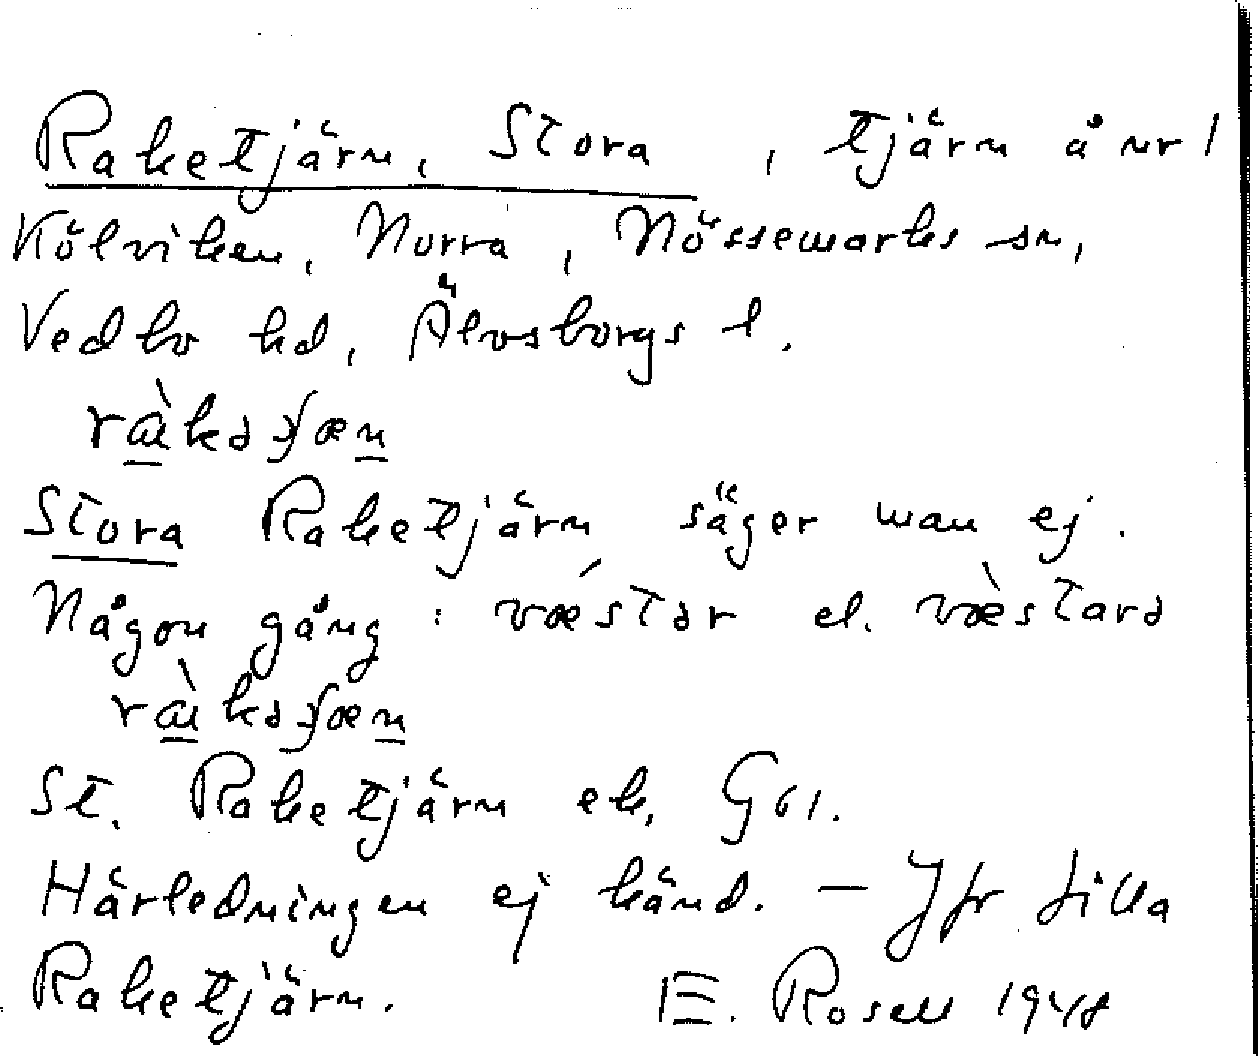 Raketjärn, Stora, tjärn å nr 1
Kölviken, Norra, Nössemarks sn,
Vedbo hd, Älvsborgs l.
Stora Raketjärn säger man ej.
Någon gång: vǽstər el. væ̀stara
St. Raketjärn ek. G61.
Härledningen ej känd. — Jfr Lilla
Raketjärn. E. Rosell 1948